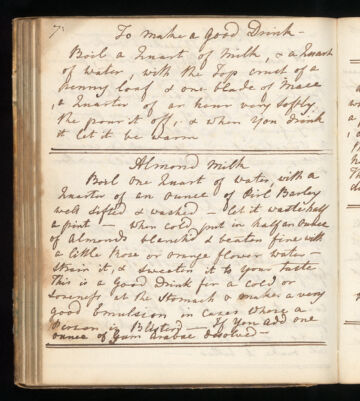 7
To make a good Drink -
Boil a Quart of Milk, & a Quart
of water, with the Top crust of a
penny loaf & one blade of Mace
a Quarter of an hour very softly
the pour it off, & when you drink
it let it be warm
Almond Milk
Boil one Quart of water, with a
Quarter of an ounce of Pirl Barley
well sifted & washed - let it waste half
a pint - when cold put in half an ounce
of Almonds blanched & beaten fine with
a little Rose or orange flower water -
strain it, & sweeten it to your taste
This is a Good Drink for a cold or
soreness at the Stomach & makes a very
good Emulsion in cases where a
Person is Blister'd - If you add one
ounce of Gum Arabac disolved -